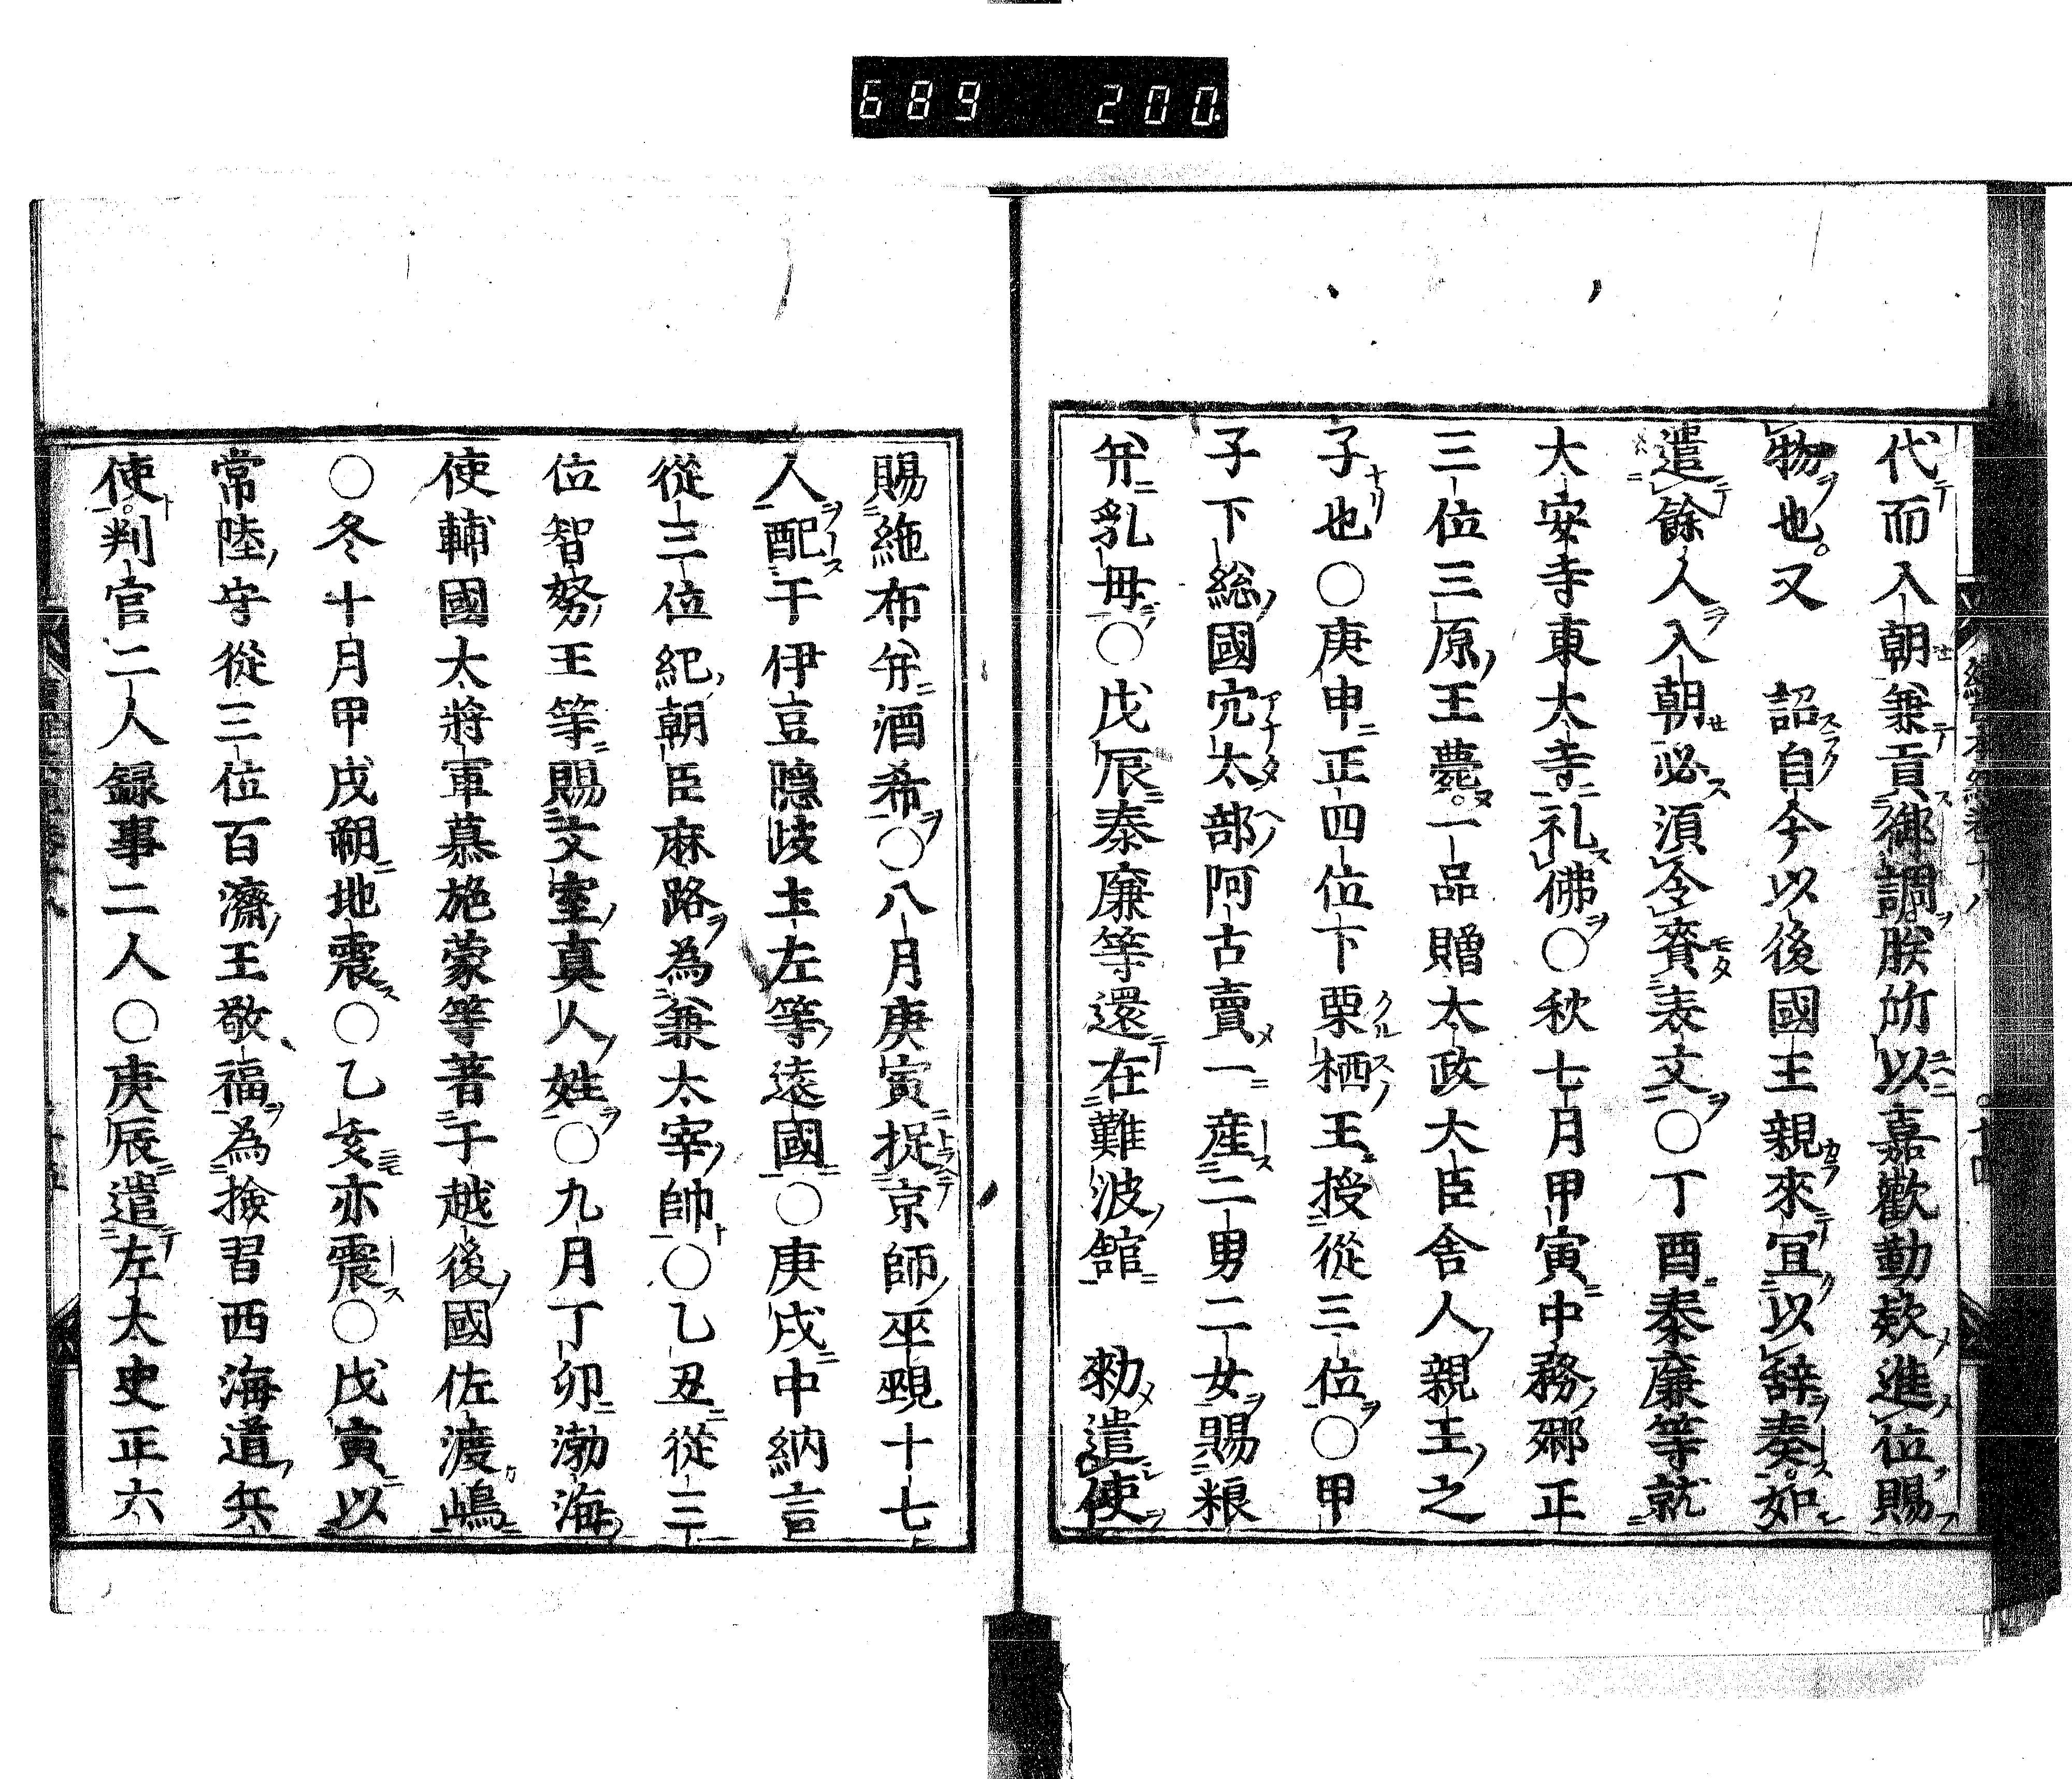 689 200
代而入朝兼貢御調朕所以嘉歡勤欵進位賜
物也又 詔自今以後國王親來宜以辞奏如
遣餘人入朝必須令賷表文〇丁酉泰廉等就
大安寺東大寺礼佛〇秋七月甲寅中務卿正
三位三原王薨一品贈太政大臣舍人親王之
子也〇庚申正四位下栗栖王授從三位〇甲
子下総國穴太部阿古賣一産二男二女賜粮
并乳母〇戊辰泰廉等還在難波館 勅遣使
賜絁布并酒希〇八月庚寅捉京師巫覡十七
人配于伊豆隠岐土左等遠國〇庚戌中納言
從三位紀朝臣麻路為兼太宰帥〇乙丑從三
位智努王等賜文室真人姓〇九月丁卯渤海
使輔國大將軍慕施蒙等著于越後國佐渡嶋
〇冬十月甲戌朔地震〇乙亥亦震〇戊寅以
常陸守從三位百濟王敬福為撿習西海道兵
使判官二人録事二人〇庚辰遣左大史正六